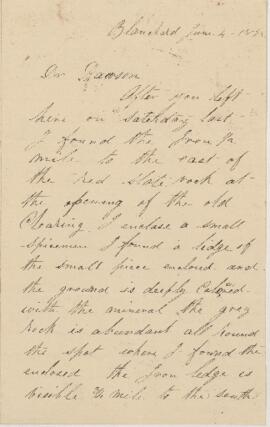 Blanchard June 4
Dr Dawson
After you left
here on Saturday last
I found the Iron 1/2
mile to the east of
the red slate rock at
the opening of the old
Clearing. I enclose a small
spicemen I found a ledge of
the small piece enclosed and
the ground is deeply Colored
with the mineral the gray
rock is abundant all round
the spot where I found the
enclosed the Iron ledge is
visible 1/2 mile to the south